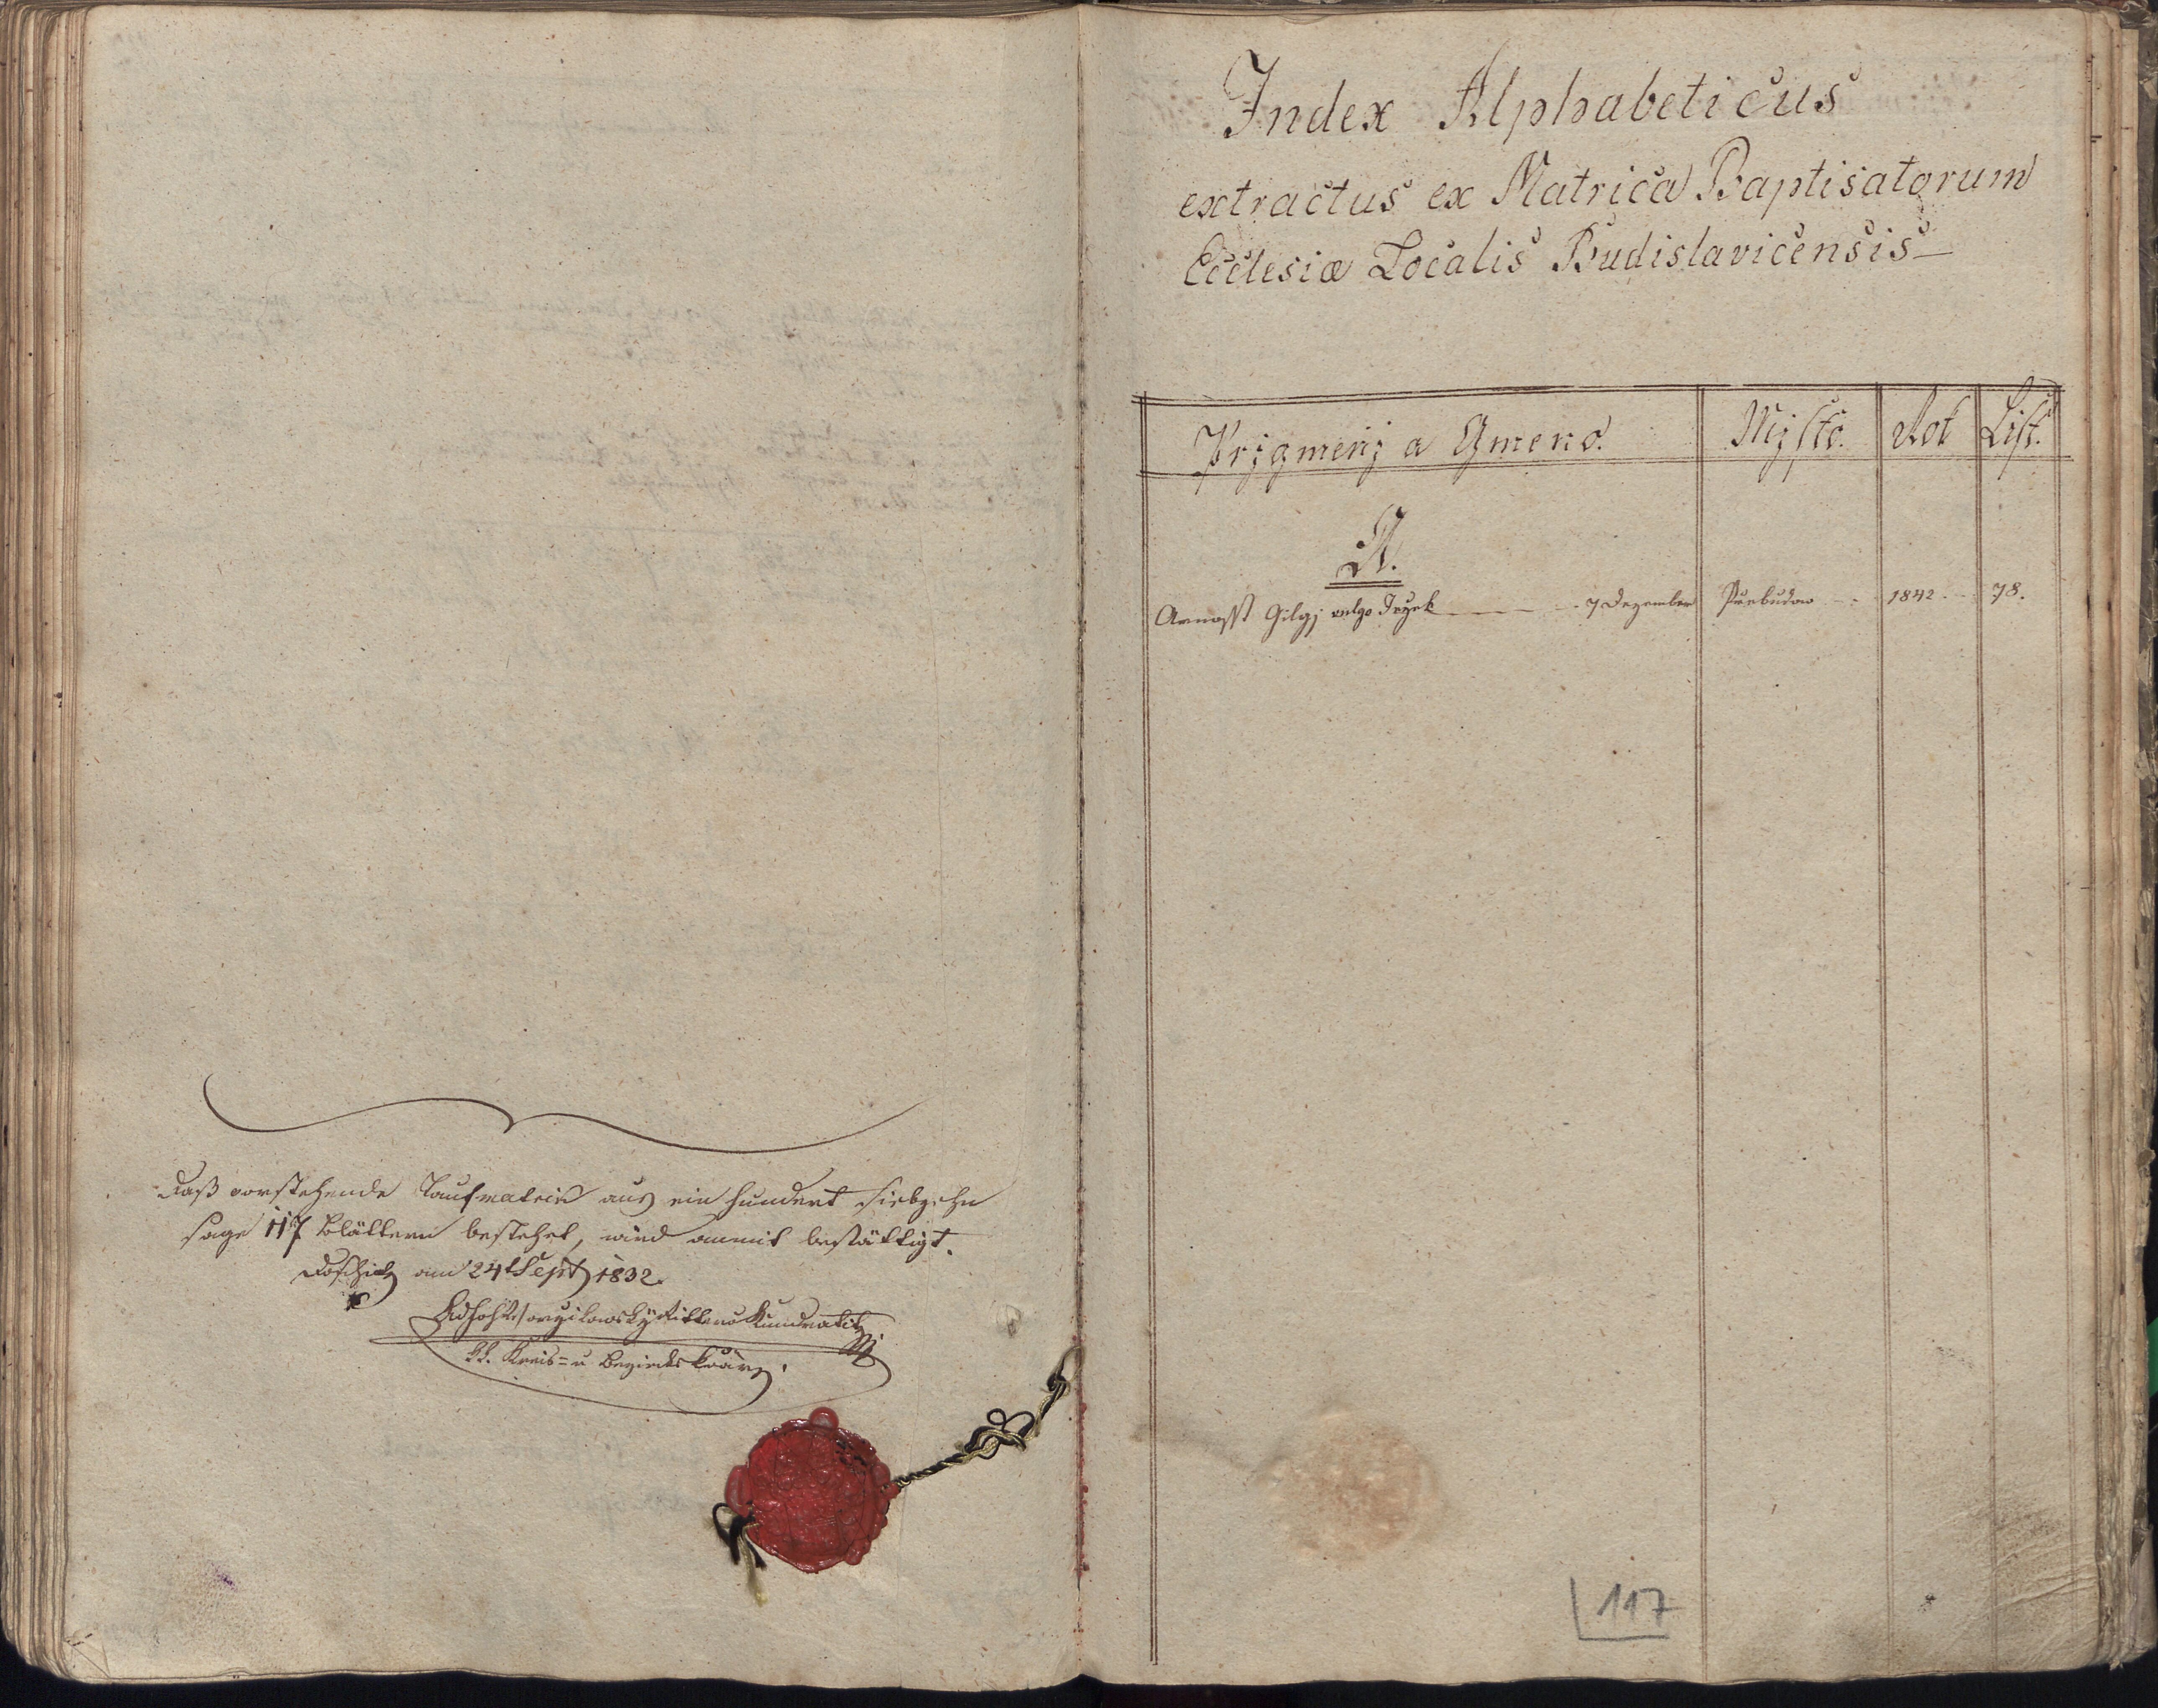 Daß vorstehende Taufmatrik aus ein hundert siebzehn
sage 117 Blättern bestehet, wird anmit bestättigt.
am 24t Sept 1832.
Kundratitz
kk. Kreis- u Bezirks
Index Alphabeticus
extractus ex Matrica Baptisatorum
Ecclesiæ Localis Budislavicensis
Přjgmenj a Gmeno.
Mjsto.
Rok
List.
A.
Arnosst Gilgj vulgo 7 Dezember
1842
78.
117